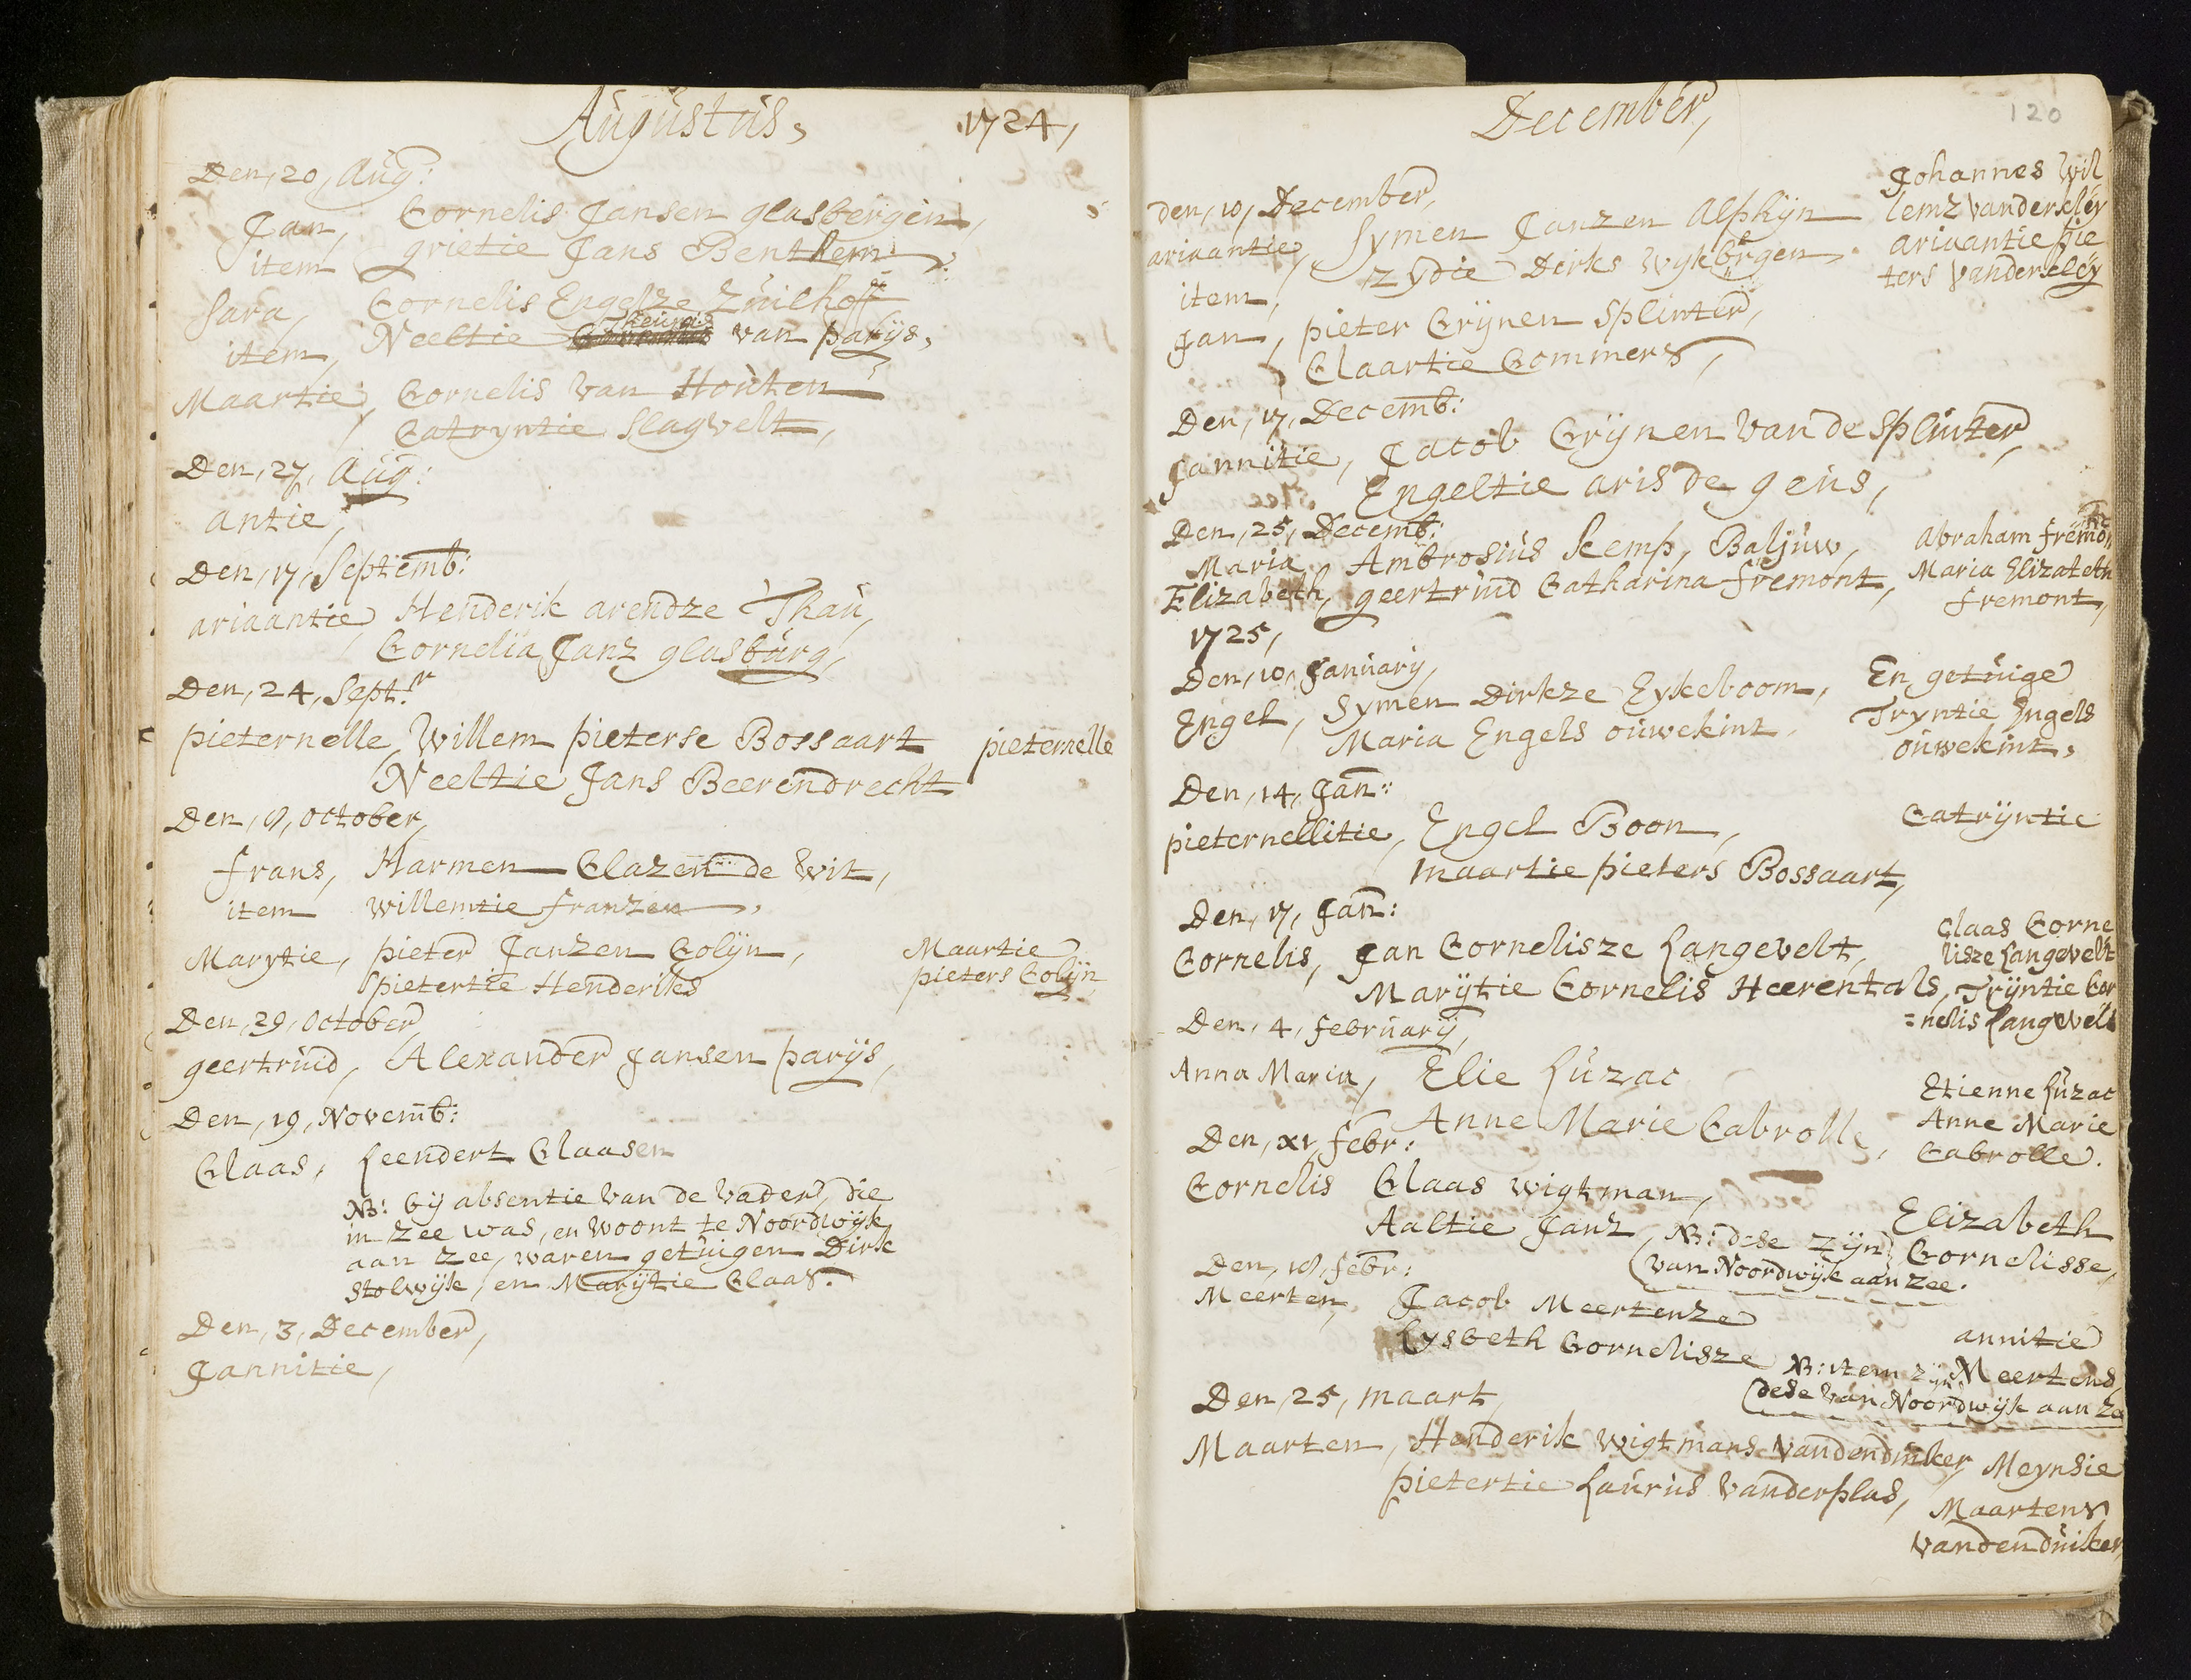 Augustus, 1724,
Den, 20, Aug:
Jan, Cornelis Jansen glasbergen,
item grietie Jans Benthem
Sara, Cornelis Engelze Zuilhoff
item, Neeltie van parijs,
Maartie, Cornelis van Houten
Catryntie Slagvelt,
Den, 27, Aug:
antie,
Den, 17, Septemb:
ariaantie Henderik arendze Thau,
Cornelia Janz glasburg,
Den, 24, Sept:
pieternelle, Willem pieterse Bossaart pieternelle
Neeltie Jans Beerendrecht
Den, 8, october,
frans, Harmen Clazen de Wit,
item willemtie franzen,
Marytie, pieter Janzen Colijn, Maartie
pietertie Henderiks pieters Colijn
Den, 29, october
geertruid, Alexander Jansen parijs,
Den, 19, Novemb:
Claas, Leendert Claasen
NB: bij absentie van de vader, die
in zee was, en woont te Noordwijk
aan zee, waren getuigen Dirk
Stolwijk, en Marijtie Claas.
Den, 3, December,
Jannitie,
December,
120
den, 10, December, Johannes Wil
ariaantie, Symen Janzen Alphijn lemz vanderkleij
item, zydie Derks wykbergen, ariaantie pie
ters vanderkleij
Jan, pieter Crijnen Splinter,
Claartie Commers,
Den, 17, Decemb:
Jannitie, Jacob Crijnen van de Splinter,
Engeltie aris de geus,
Den, 25, Decemb:
Maria Ambrosius kemp, Baljuw, Abraham fremont
Elizabeth, geertruid Catharina fremont, Maria Elizabeth
fremont,
1725,
Den, 10, January,
Engel, Symen Dirkze Eykeboom, En getuige
Maria Engels ouwekint, Tryntie Engels
ouwekint,
Den, 14, Jan:
pieternellitie, Engel Boon, Catrijntie
maartie pieters Bossaart,
Den, 17, Jan:
Cornelis, Jan Cornelisze Langevelt, Claas Corne
lisze Langevelt
Marijtie Cornelis Heerentals, Trijntie Cor
=nelis Langevelt
Den, 4, february,
Anna Maria, Elie Luzac Etienne Luzac
Anne Marie Cabrolle, Anne Marie
Cabrolle.
Den, XI, febr:
Cornelis Claas wigtman,
Aaltie Janz, NB: dese zijn Elizabeth
van Noordwijk aan zee. Cornelisse,
Den, 18, febr:
Meerten, Jacob Meertenze
Lysbeth Cornelisze annitie
NB: item zijn Meertens,
dese van Noordwijk aan zee
Den, 25, maart,
Maarten, Henderik wigtmans vandenduiker, Meynsie
pietertie Lauris vanderplas, Maartens
vandenduiker,